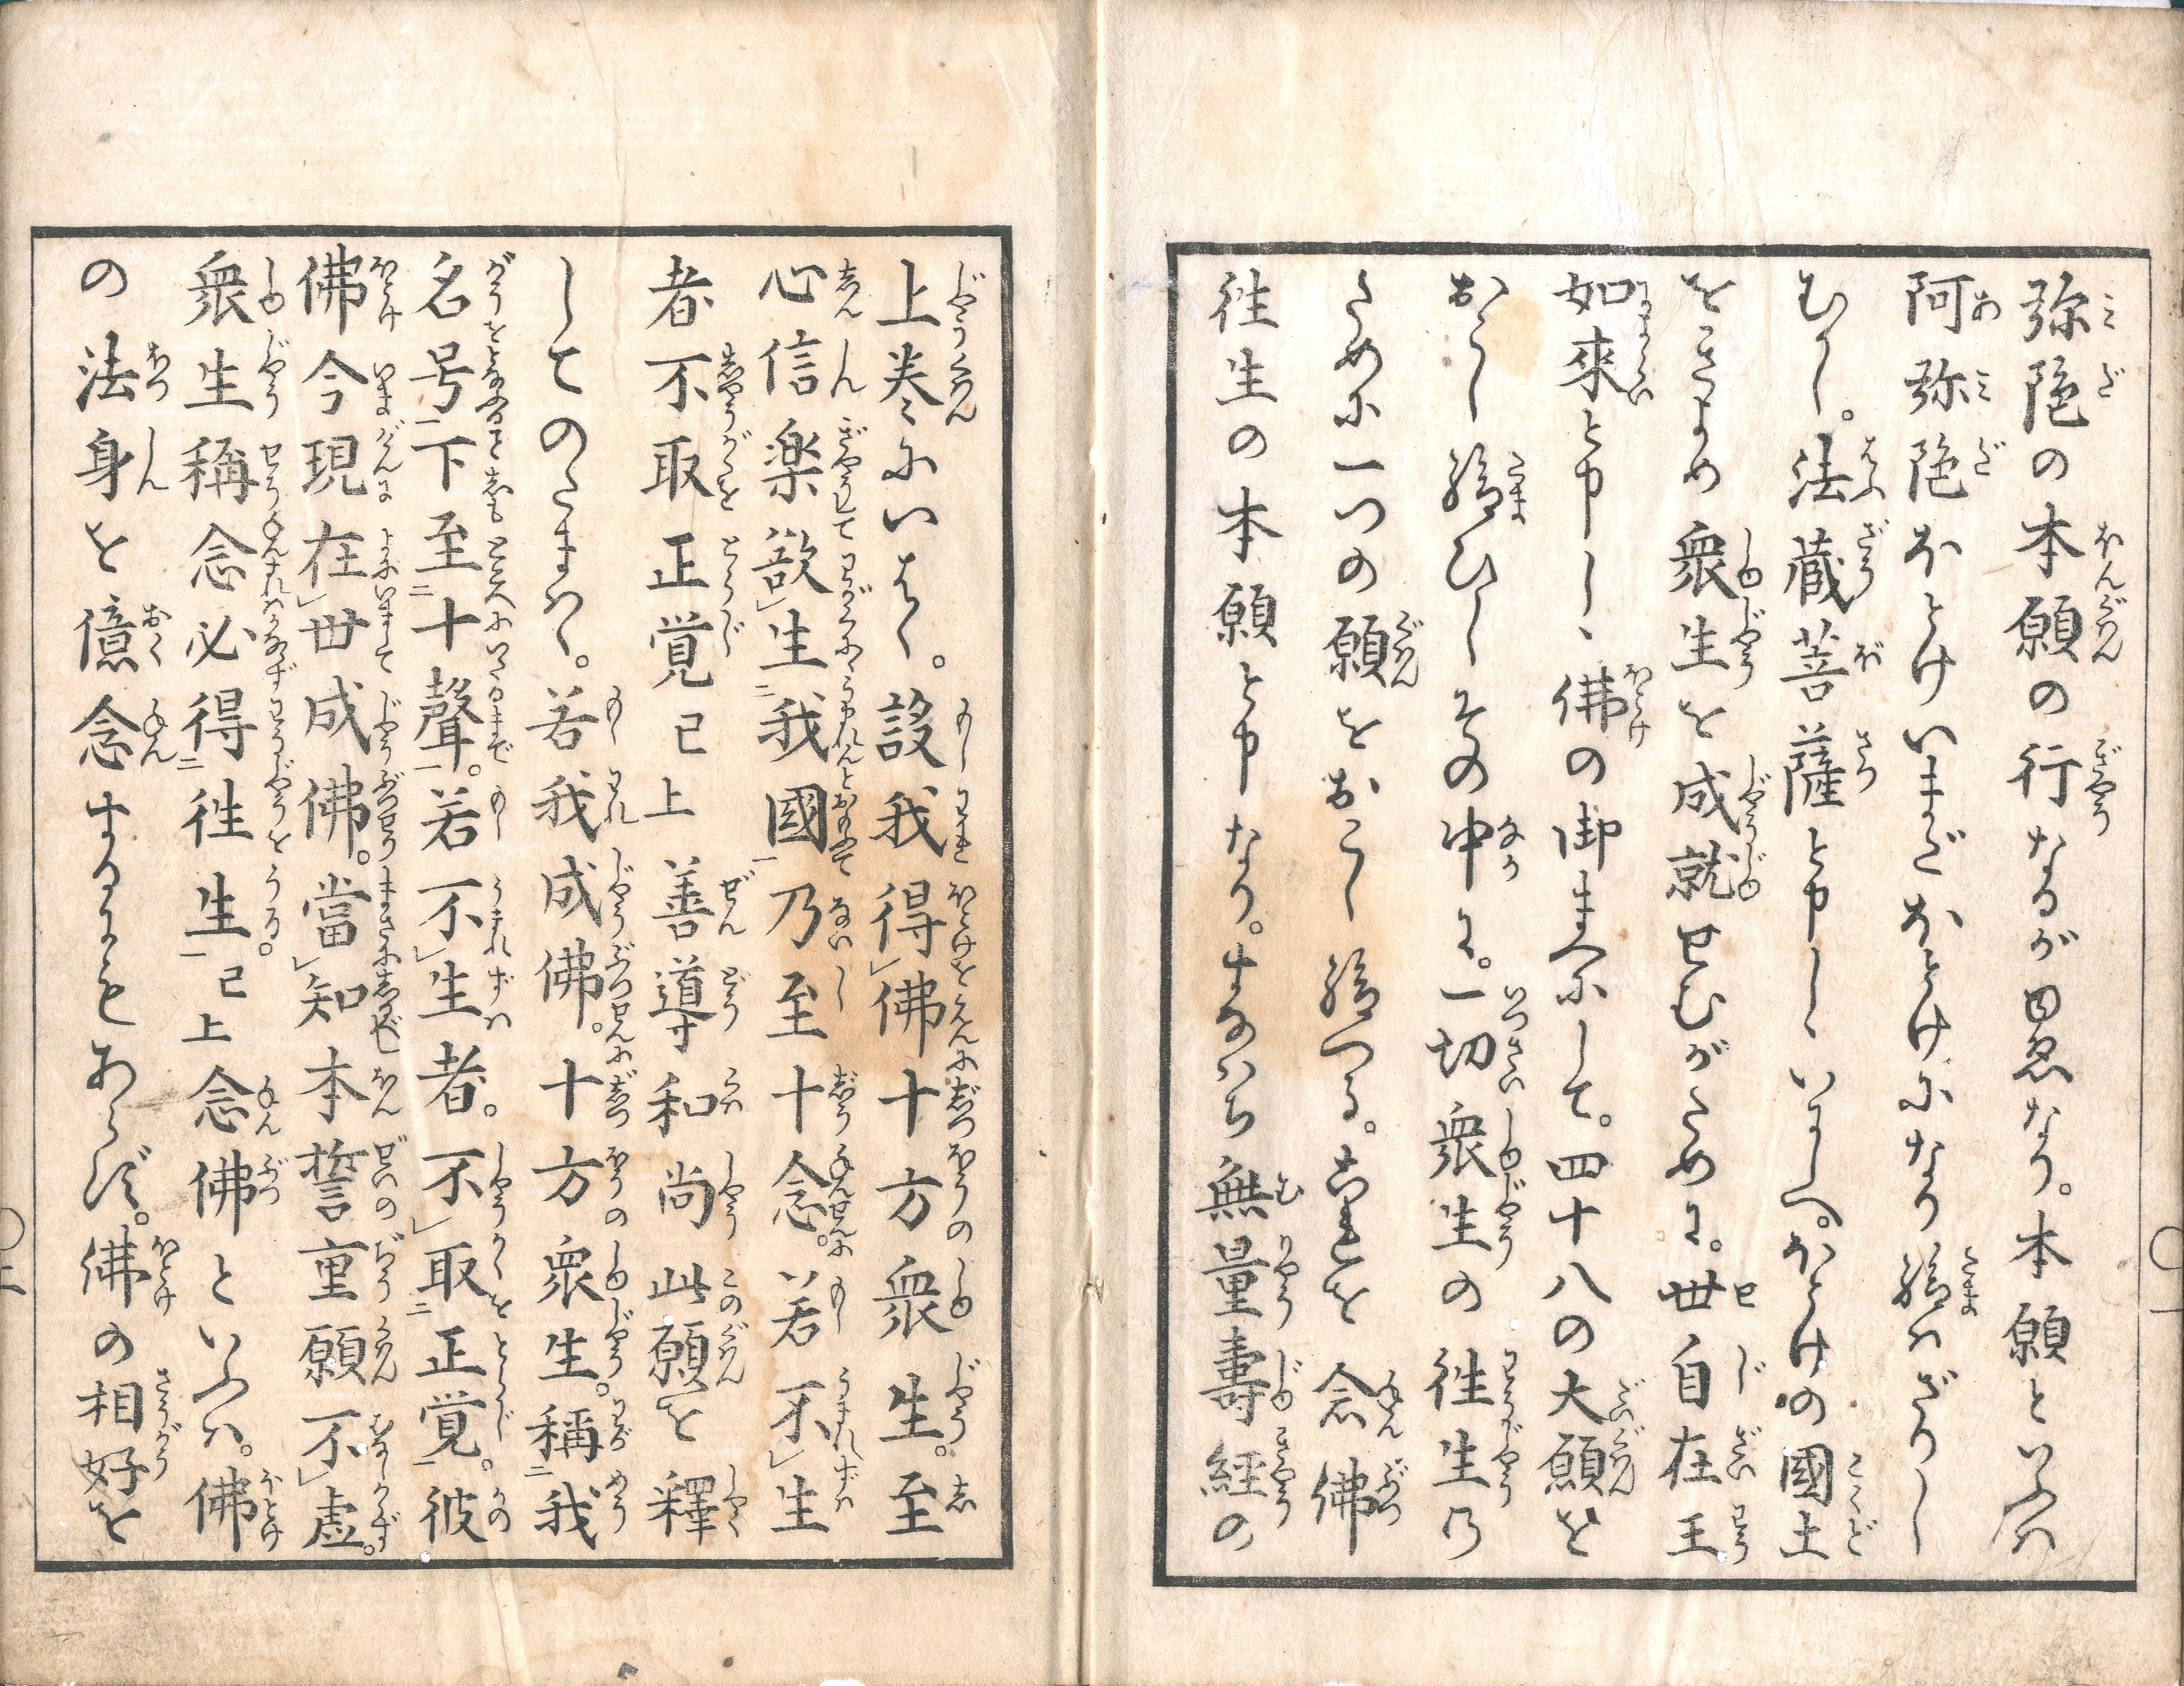 弥陁の本願の行なるがゆゑなり。本願といふハ
阿弥陁ほとけいまだほとけになり給ハざりし
むかし。法蔵菩薩と申しゝいにしへ。ほとけの國土
をきよめ衆生を成就せむがために。世自在王
如來と申しゝ、佛の御まへにして。四十八の大願を
おこし給ひしその中に。一切衆生の徃生の
ために一つの願をおこし給へる。これを念佛
徃生の本願と申なり。すなハち無量壽経の
上巻にいはく。設我得佛十方衆生。至
心信楽欲生我國乃至十念。若不生
者不取正覚已上善導和尚此願を釋
してのたまハく。若我成佛。十方衆生。稱我
名号下至十聲。若不生者。不取正覚。彼
佛今現在世成佛。當知本誓重願不虚。
衆生稱念必得徃生已上念佛といふハ。佛
の法身を億念するにもあらず。佛の相好を